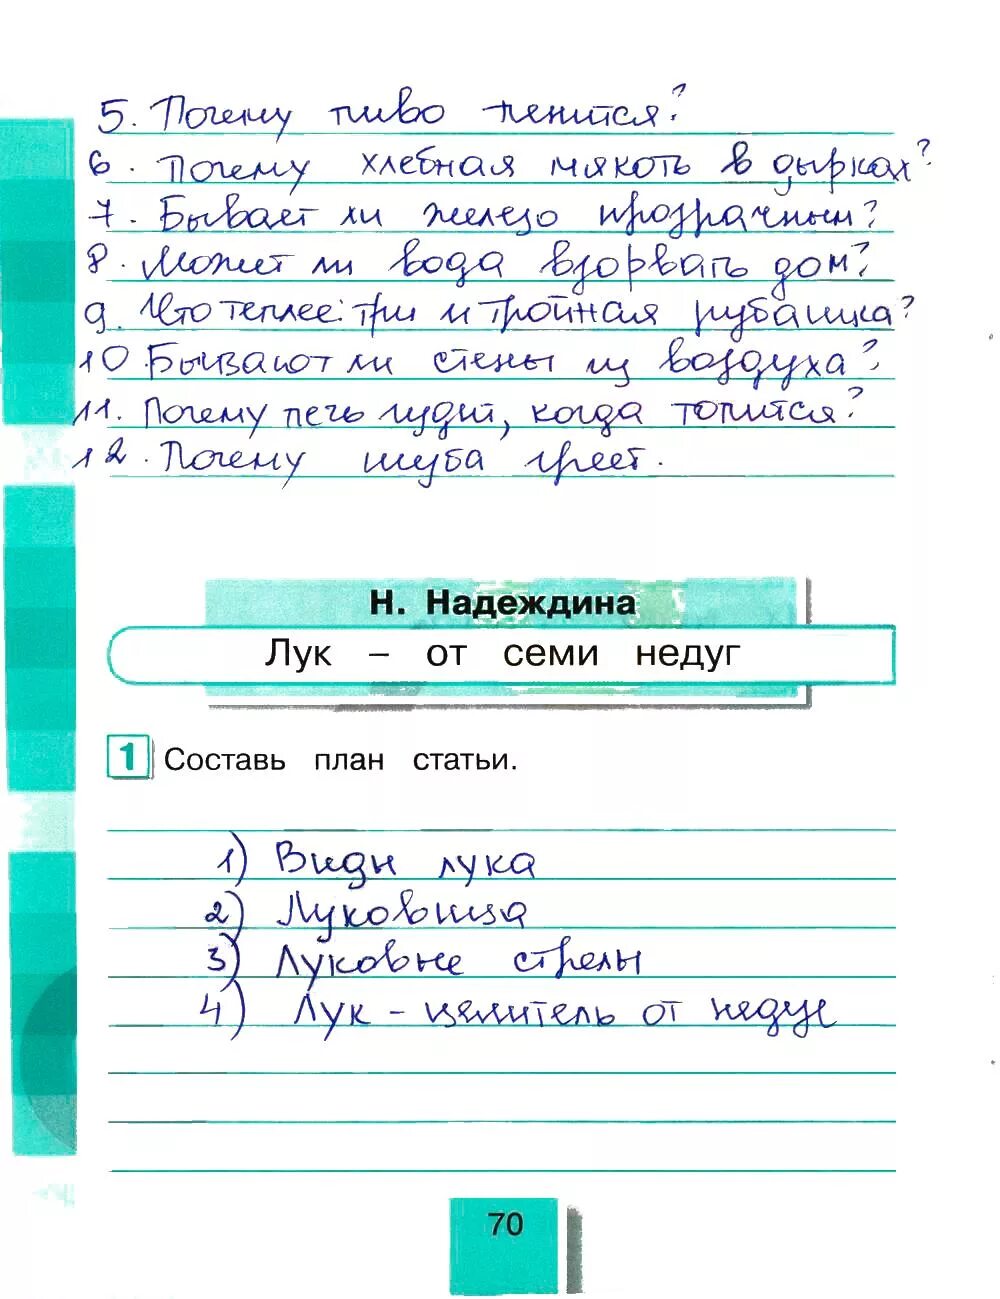 5. Почему пиво пенится?
6. Почему хлебная мякоть в дырках?
7. Бывает ли железо прозрачным?
8. Может ли вода взорвать дом?
9. Что теплее: три и тройная рубашка?
10 Бывают ли стены из воздуха?
11. Почему печь гудит, когда топится?
12. Почему шуба греет.
Н. Надеждина
Лук – от семи недуг
1 Составь план статьи.
1) Виды лука
2) Луковица
3) Луковые стрелы
4) Лук – целитель от недуг
70